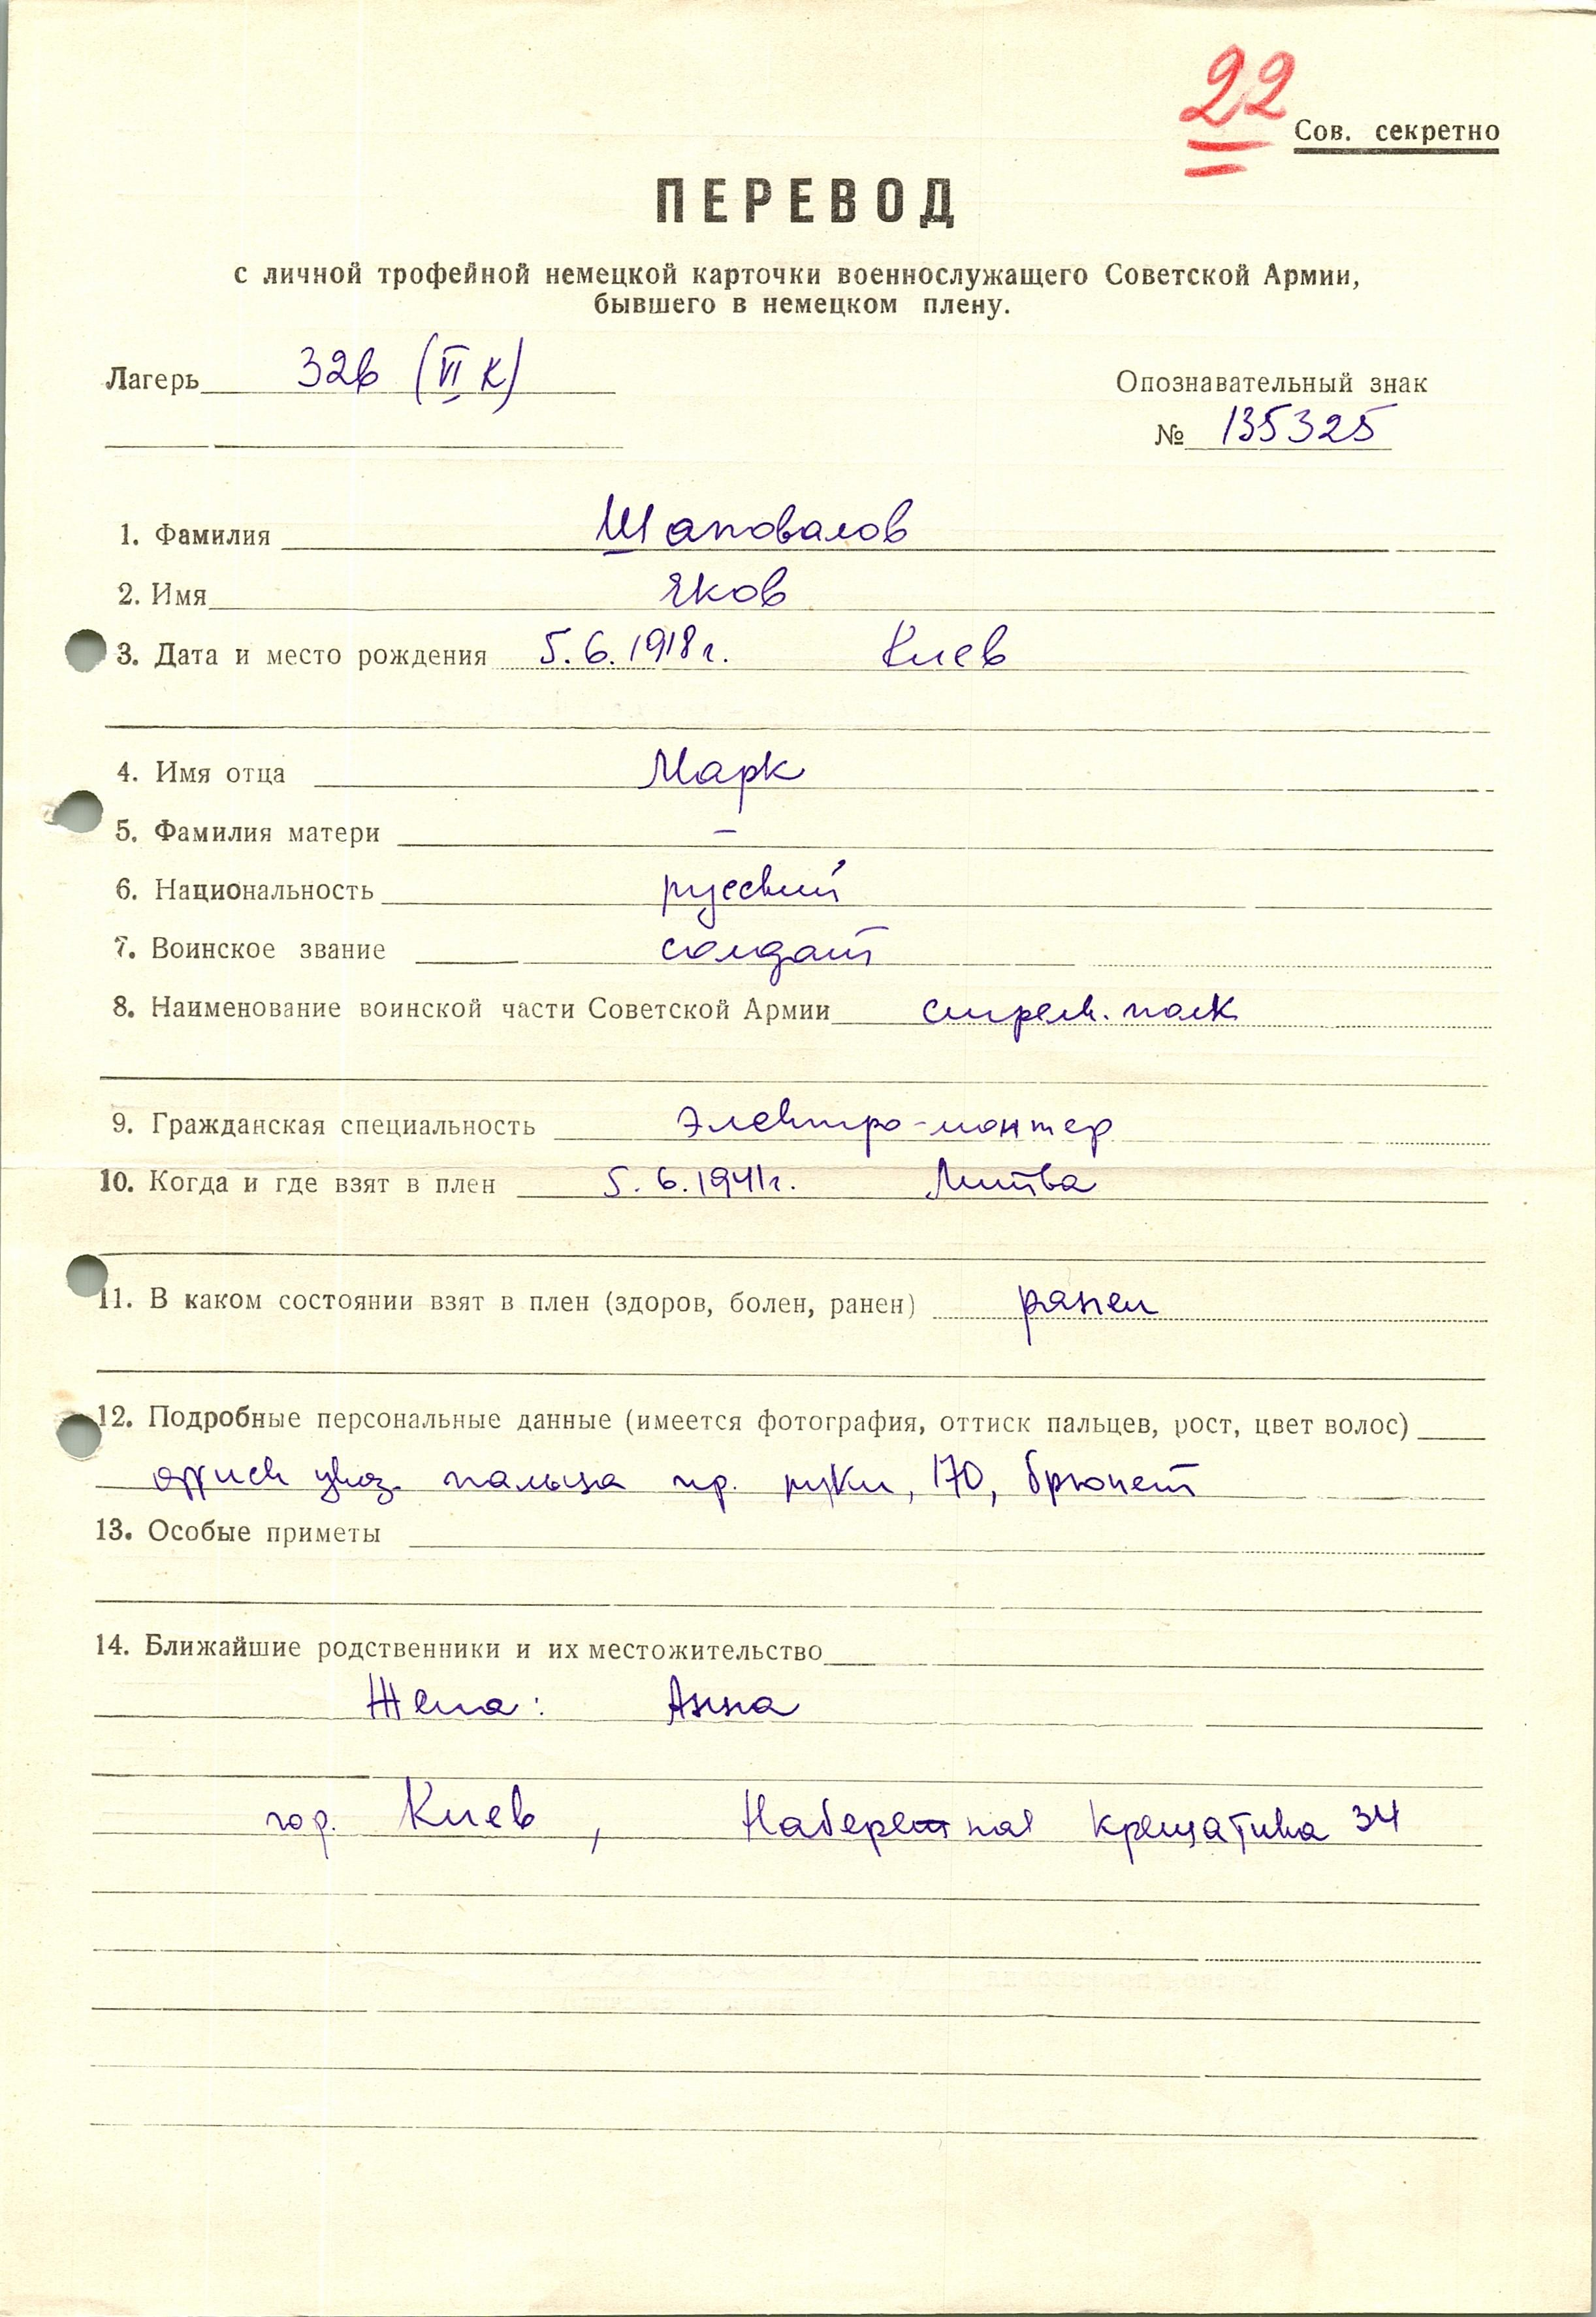 22
Сов. секретно
ПЕРЕВОД
с личной трофейной немецкой карточки военнослужащего Советской Армии,
бывшего в немецком плену.
Лагерь 326 (VI К)
Опознавательный знак
№ 135325
1. Фамилия Шаповалов
2. Имя Яков
3. Дата и место рождения 5.6.1918г. Киев
4. Имя отца Марк
5. Фамилия матери –
6. Национальность русский
7. Воинское звание солдат
8. Наименование воинской части Советской Армии стрелк. полк
9. Гражданская специальность электро-монтер
10. Когда и где взят в плен 5.6.1941г. Литва
11. В каком состоянии взят в плен (здоров, болен, ранен) ранен
12. Подробные персональные данные (имеется фотография, оттиск пальцев, рост, цвет волос)
указ. пальца пр. руки, 170, брюнет
13. Особые приметы
14. Ближайшие родственники и их местожительство
Жена: Анна
гор. Киев, Набережная Крещатика 34